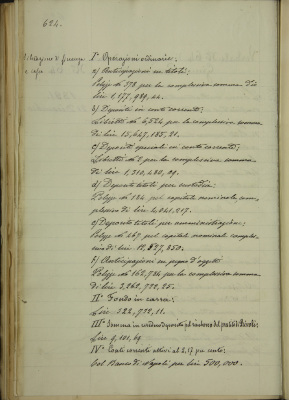 624.
Situazione di finanza
e cassa
I° Operazioni ordinarie:
a) Anticipazioni su titoli:
Polizze di 378 per la complessiva somma di
Lire 1,277,989,44.
b) Depositi in conto corrente:
Libretti di 6,524 per la complessiva somma
di Lire 15,647,185,21.
c) Depositi speciali in conto corrente:
Libretti di 2 per la complessiva somma
di Lire 1,310,480,09.
d) Depositi titoli per custodia:
Polizze di 124 pel capitale nominale com-
plessivo di Lire 4,041,217.
e) Deposito titoli per amministrazione:
Polizze di 467 pel capitale nominale comples-
sivo di Lire 12,827,850.
f) Anticipazioni su pegno d'oggetti
Polizze di 162,726 per la complessiva somma
di Lire 3,262,722,25.
II° Fondo in cassa:
Lire 322,972,11.
III°
Lire 8,101,69
IV° Conti correnti attivi al 2,17 per cento:
Col Banco di Napoli per Lire 500,000.